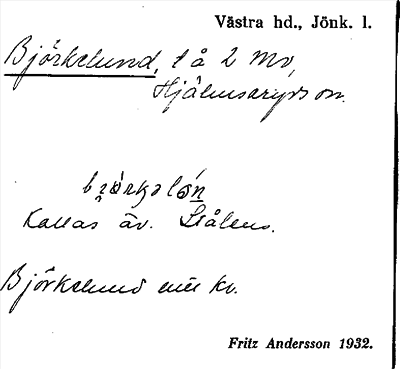 Västra hd., Jönk. l.
Björkelund, t å 2 Mv,
Hjälmseryds sn.
Kallas äv. Stålens.
Björkelund enl. kv.
Fritz Andersson 1932.